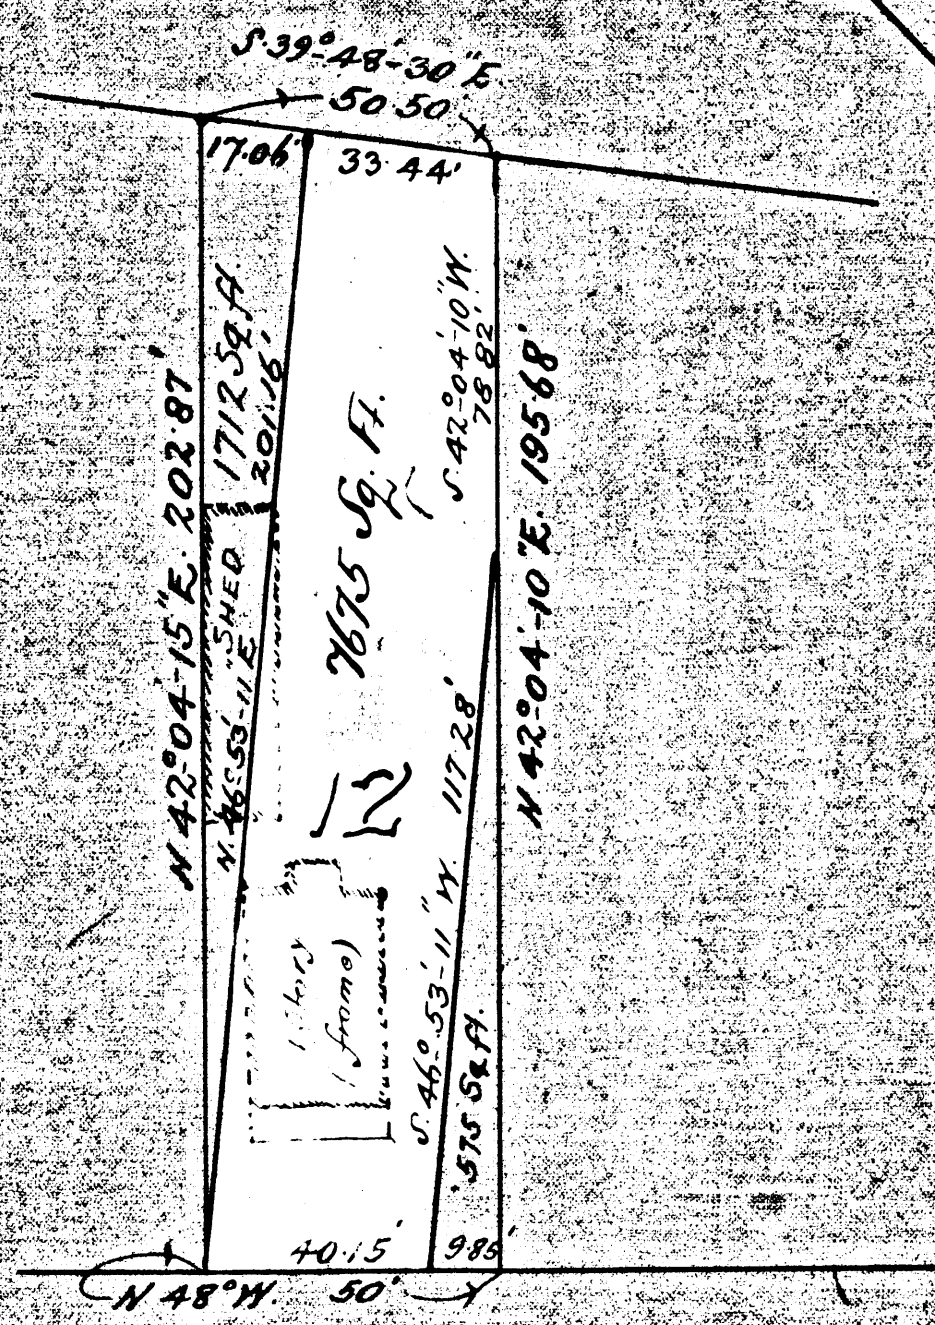 S. 39°-48'-30"E.
50.50'
17.06'
33.44'
N 42°-04'-15" E. 202.87'
1712 Sq ft.
201.16'
"SHED"
N. 46°-53'-11" E
7675 Sq. Ft.
S 42°-04'-10" W.
78.82'
N 42°-04'-10" E. 195.68'
12
1 story
(frame)
S. 46°-53'-11" W. 117.28'
575 Sq ft.
40.15'
9.85'
N 48° W. 50'